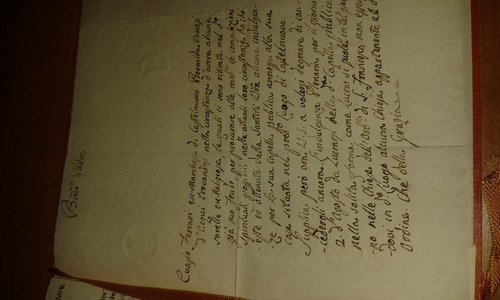 B.mo Padre
Evasio Ferrari ex-Marchese di Castelnuovo Bormida Diocesi
d'Acqui trovandosi nella circostanza d'avere alcune
sorelle ex-Religiose, le quali si sono ritirate nel d.o
già suo feudo, per procurare alle med.e le consolazioni
Spirituali possibili nelle attuali loro circostanze ha
-este ed ottenute dalla Santità V.ra alcune indulgen-
ze per la sua capella publica annessa alla sua
casa situata nel pred.o luogo di Castelnuovo.
Supplica però ora V.S. a volersi degnare di con-
-cedergli ancora l'indulgenza Plenaria per il giorno
2. d'Agosto da lucrarsi nella d.a Capella publica
nella solita forma, come lucrar si suole in tal gior
no nelle Chiese dell'Ord.e di S. Francesco non essen
-dovi in d.o luogo alcuna Chiesa appartenente al d.o
Ordine. Che della Grazia